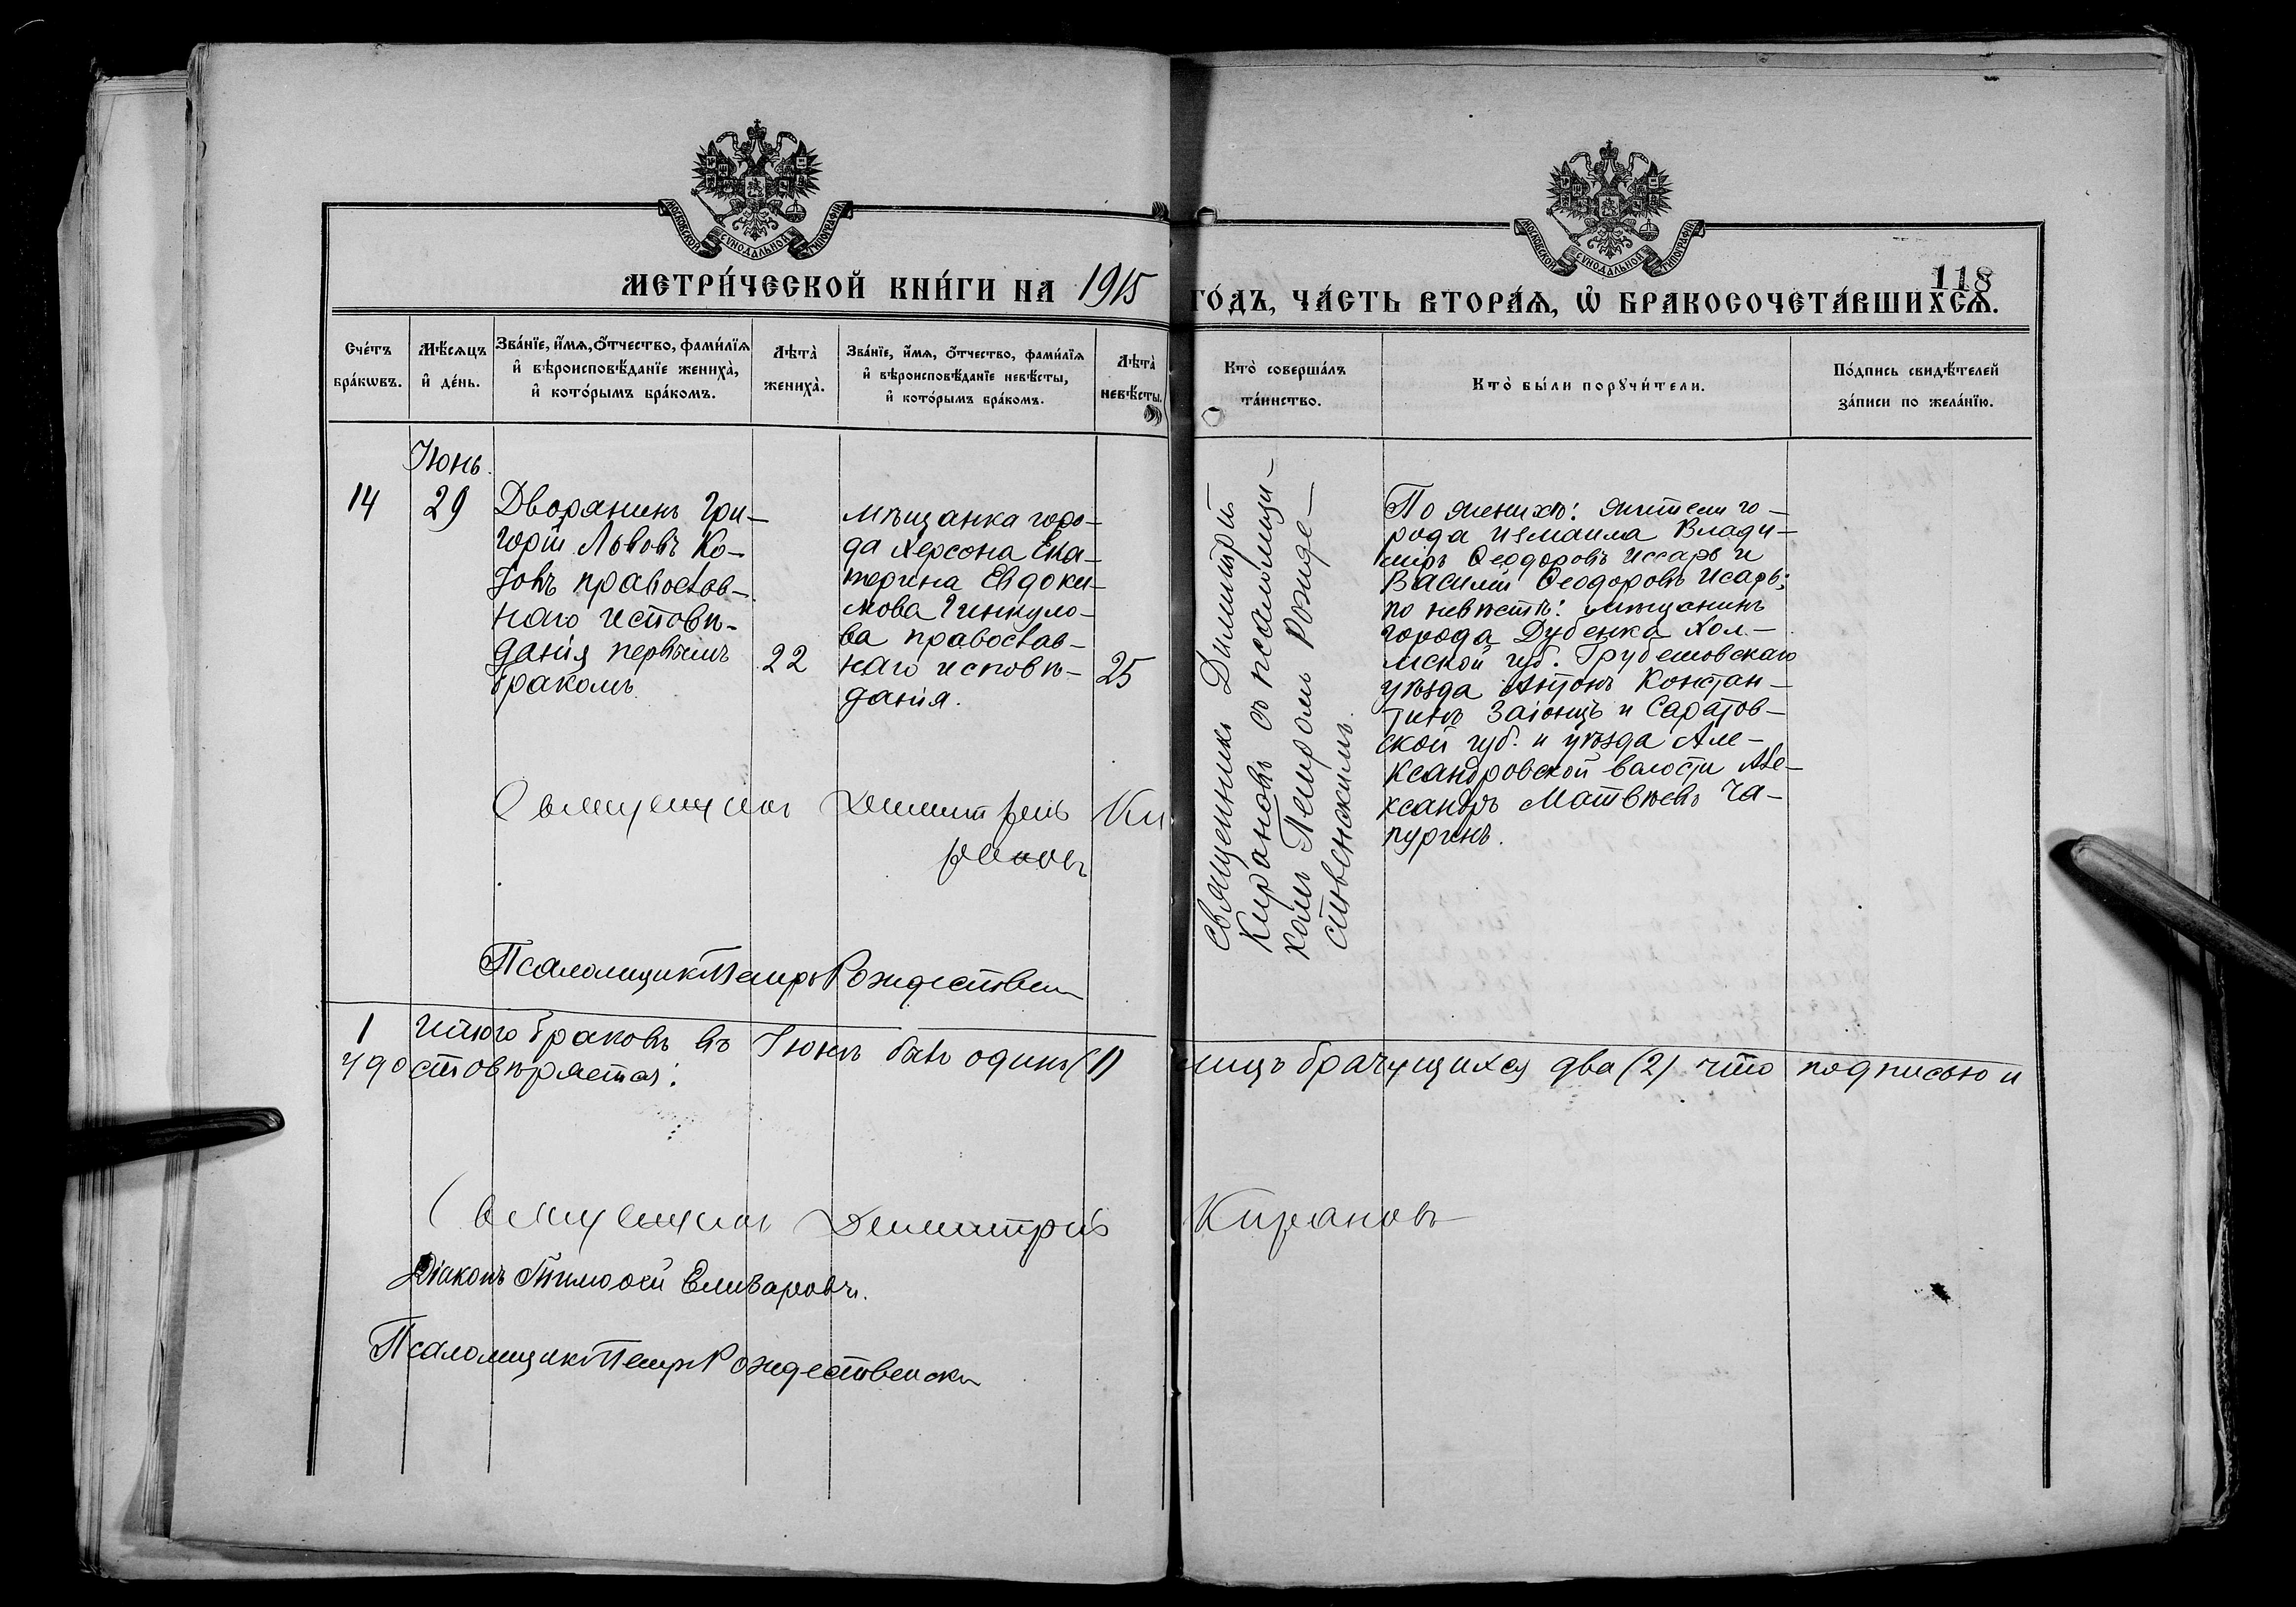 МОСКОВСКОЙ СѴНОДАЛЬНОЙ ТИПОГРАФІИ
МОСКОВСКОЙ СѴНОДАЛЬНОЙ ТИПОГРАФІИ
118
МЕТРИ́ЧЕСКОЙ КНИ́ГИ НА 1915 ГО́ДЪ, ЧА́СТЬ ВТОРА́Ѧ, Ѡ҆ БРАКОСОЧЕТА́ВШИХСѦ.
Сче́тъ
бра́кѡвъ.
Мѣ́сѧцъ
и҆ де́нь.
Зва́нїе, и҆́мѧ, ѻ҆́тчество, фами́лїѧ
и҆ вѣроисповѣ́данїе жениха̀,
и҆ кото́рымъ бра́комъ.
Лѣта̀
жениха̀.
Зва́нїе, и҆́мѧ, ѻ҆́тчество, фами́лїѧ
и҆ вѣроисповѣ́данїе невѣ́сты,
и҆ кото́рымъ бра́комъ.
Лѣта̀
невѣ́сты.
Кто̀ соверша́лъ
та́инство.
Кто̀ бы́ли порꙋчи́тели.
По́дпись свидѣ́телей
за́писи по жела́нїю.
Іюнь.
14
29
Дворянинъ Гри-
горій Львовъ Ко-
православ-
наго исповѣ-
данія первымъ
бракомъ.
22
Мѣщанка горо-
да Херсона Ека-
терина Евдоки-
мова Гинкуло-
ва православ-
наго исповѣ-
данія.
25
Священникъ Димитрій
Кирановъ съ псаломщи-
комъ Петромъ Рожде-
ственскимъ.
По женихѣ: жители го-
рода Измаила Влади-
міръ Ѳеодоровъ Иссаръ и
Василій Ѳеодоровъ Исаръ;
по невѣстѣ: мѣщанинъ
города Дубенка Хол-
мской губ. Грубешовскаго
уѣзда Антонъ Констан-
тинъ Заіонцъ и Саратов-
ской губ. и уѣзда Але-
ксандровской волости Але-
ксандръ Матвѣевъ Ча-
пуринъ.
Священникъ Димитрій Ки
рановъ
Псаломщикъ Петръ Рождествен
1 Итого браковъ въ Іюнѣ былъ одинъ (1) лицъ брачущихся два (2) что подписью и
удостовѣряется:
Священникъ Димитрій Кирановъ
Діаконъ Тимоѳей Елизаровъ.
Псаломщикъ Петръ Рождественски